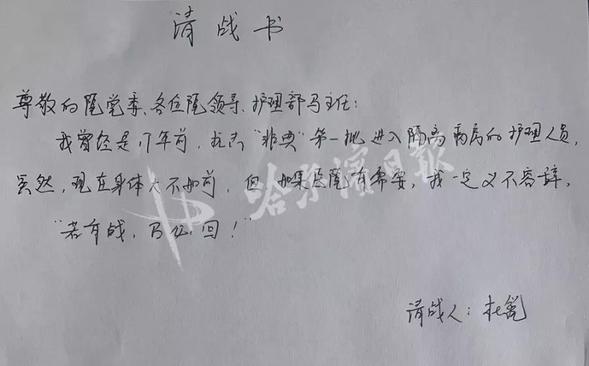 请战书
尊敬的院党委、各位院领导、护理部马主任:
我曾经是17年前,抗击"非典"第一批进入隔离病房的护理人员,
虽然,现在身体大不如前,但,如果医院有需要,我一定义不容辞,
"若有战,乃必回!"
哈尔滨日报
请战人:杜